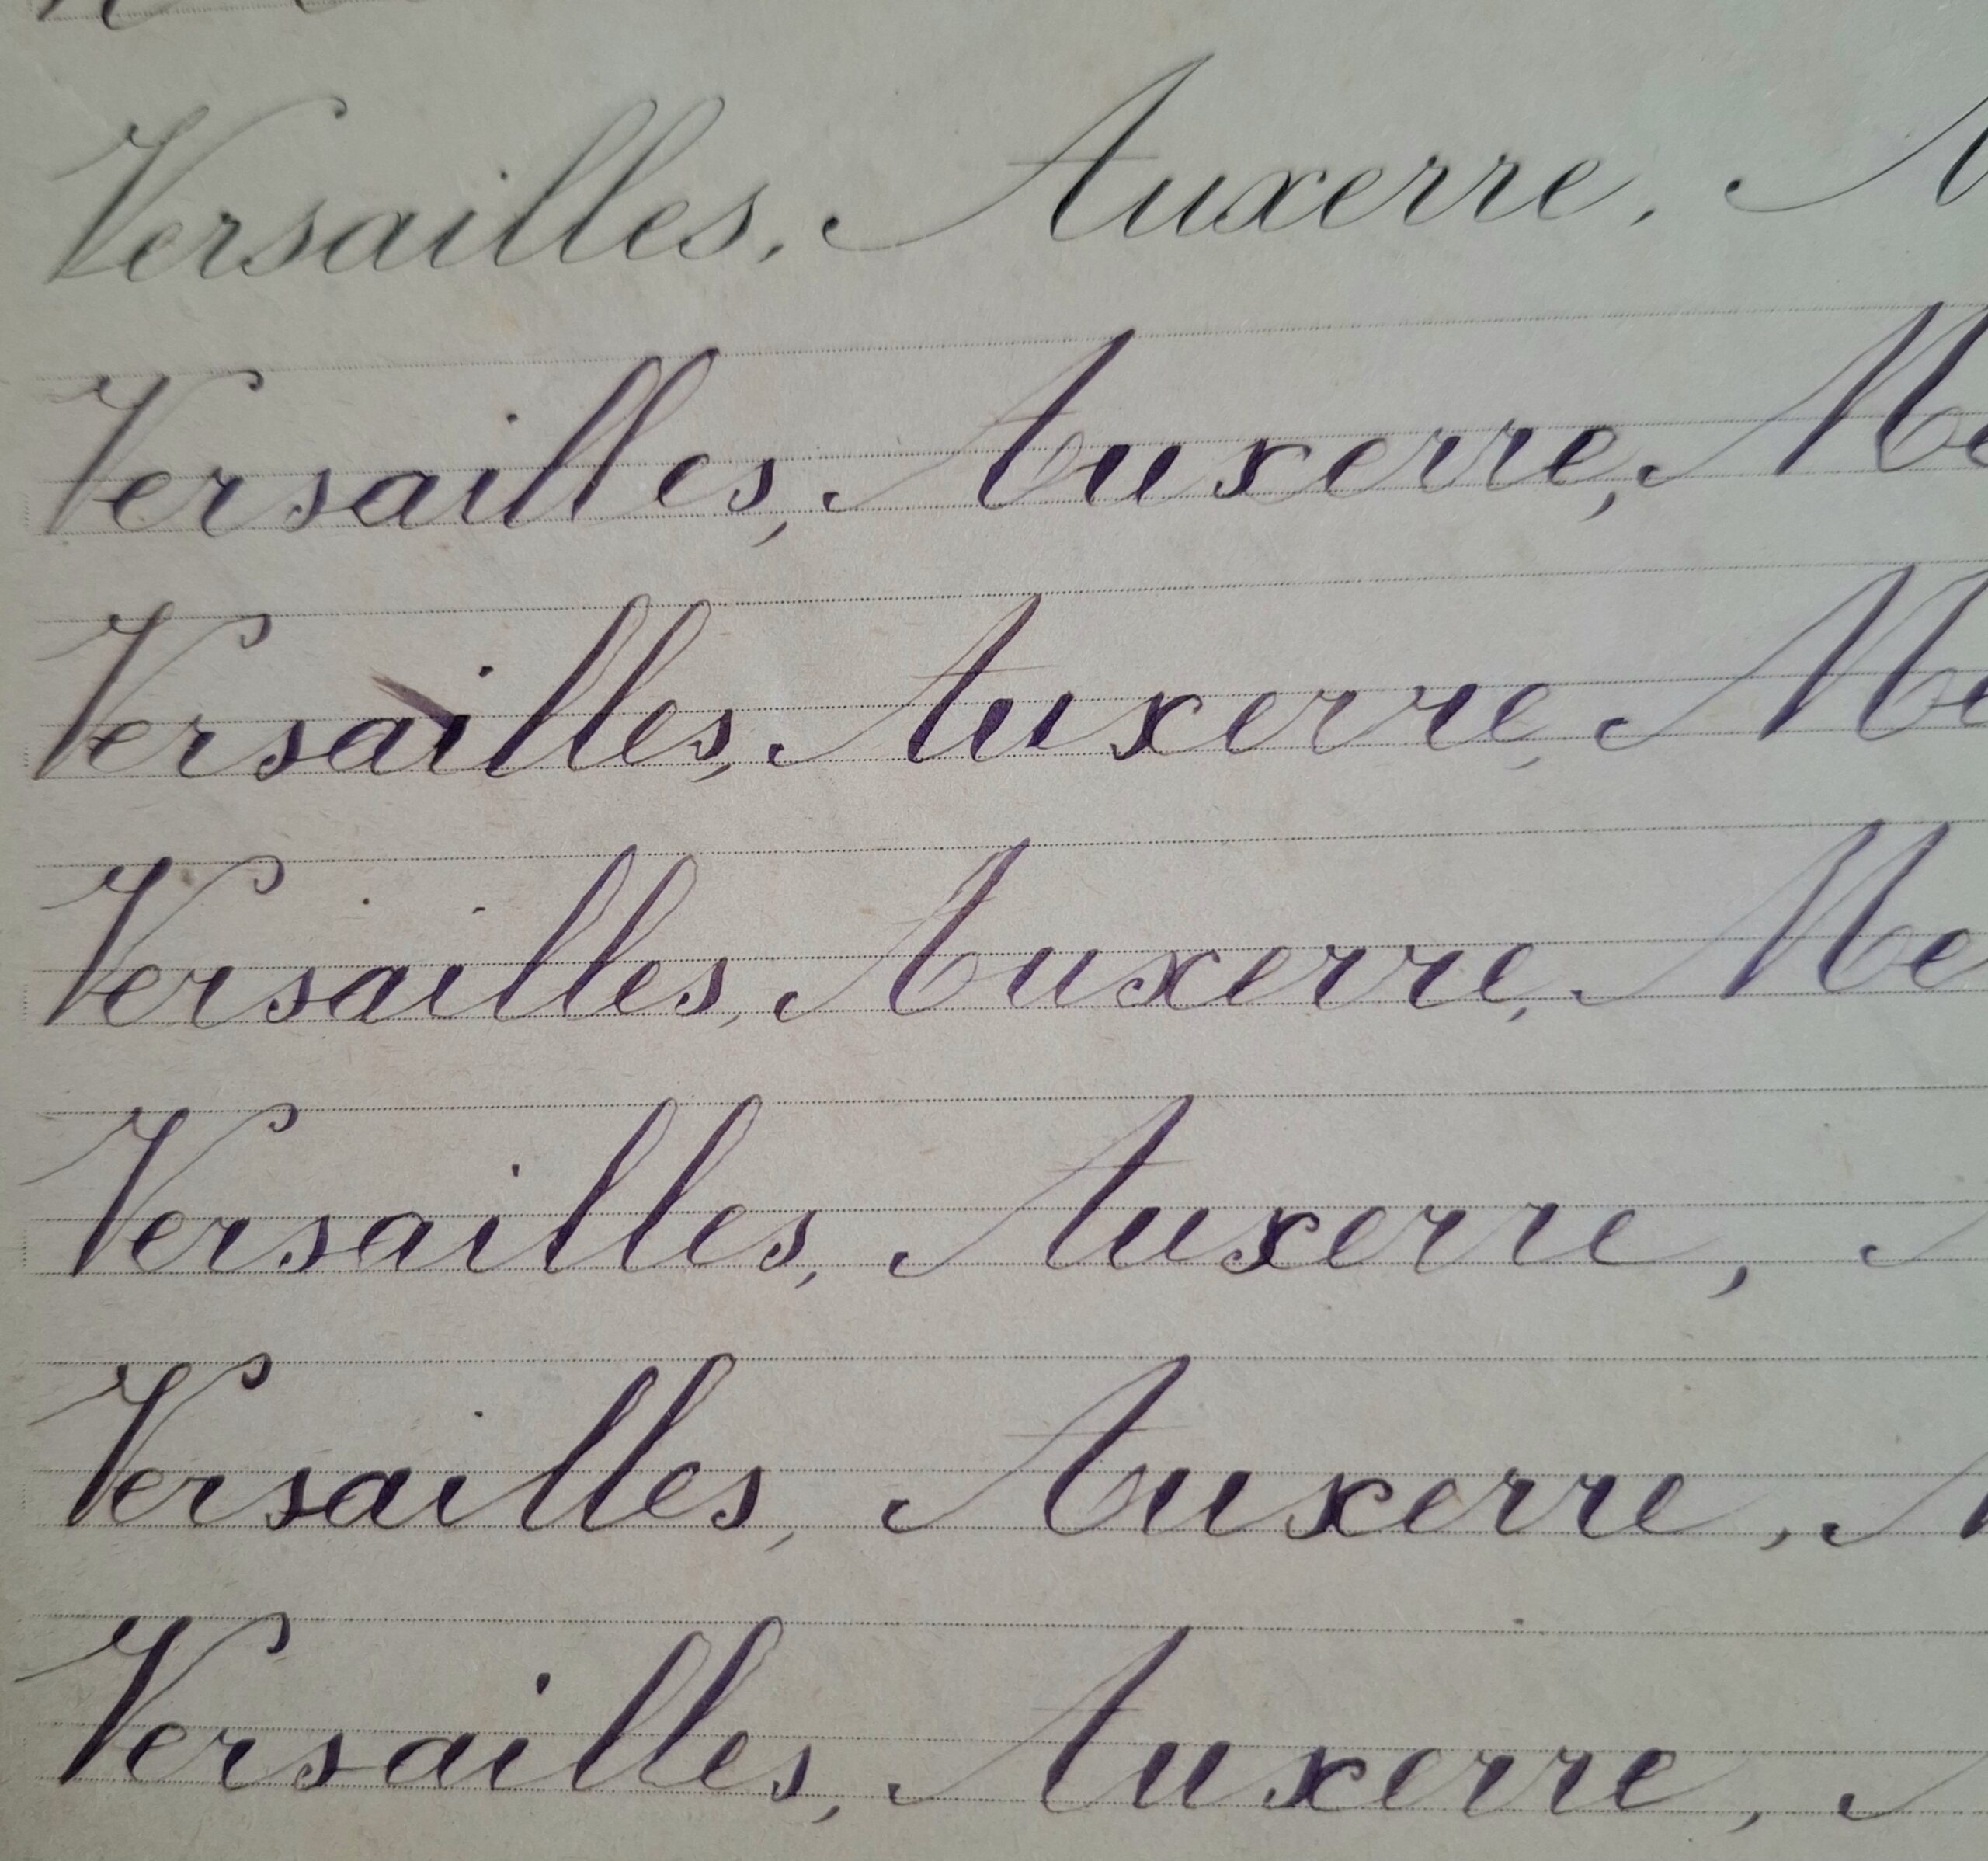 Versailles, Auxerre,
Versailles, Auxerre, Me
Versailles, Auxerre, Me
Versailles, Auxerre, Me
Versailles, Auxerre,
Versailles, Auxerre,
Versailles, Auxerre,